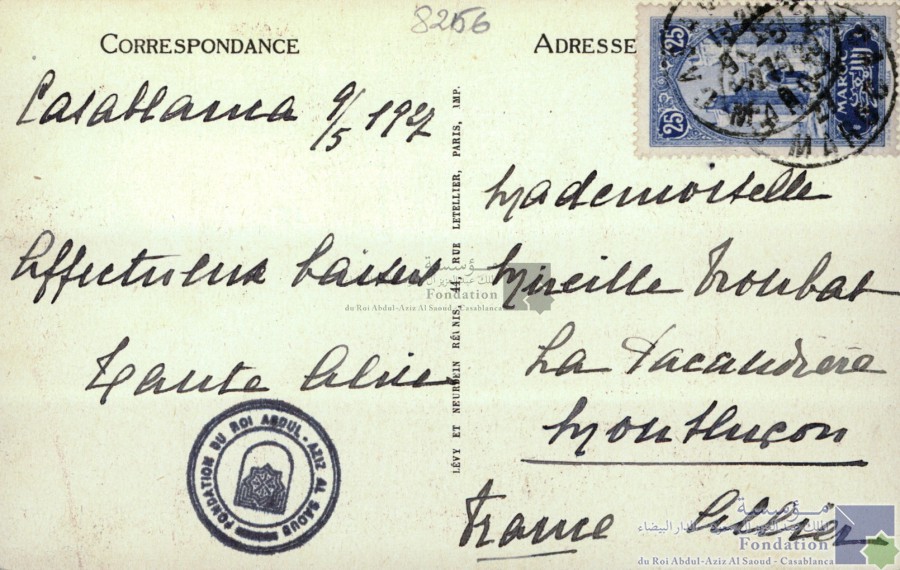 8256
CORRESPONDANCE
ADRESSE
25
25
MAROC
Casablanca 9/5 1927
Affectueux baisers
Tante Alice
LÉVY ET NEURDEIN RÉUNIS, 44, RUE LETELLIER, PARIS, IMP.
Mademoiselle
Mireille Troubat
La Pacaudière
Montluçon
France Allier
FONDATION DU ROI ABDUL-AZIZ AL SAOUD
مؤسسة
الملك عبد العزيز آل
Fondation
du Roi Abdul-Aziz Al Saoud - Casablanca
مؤسسة
الملك عبد العزيز آل سعود الدار البيضاء
Fondation
du Roi Abdul-Aziz Al Saoud - Casablanca